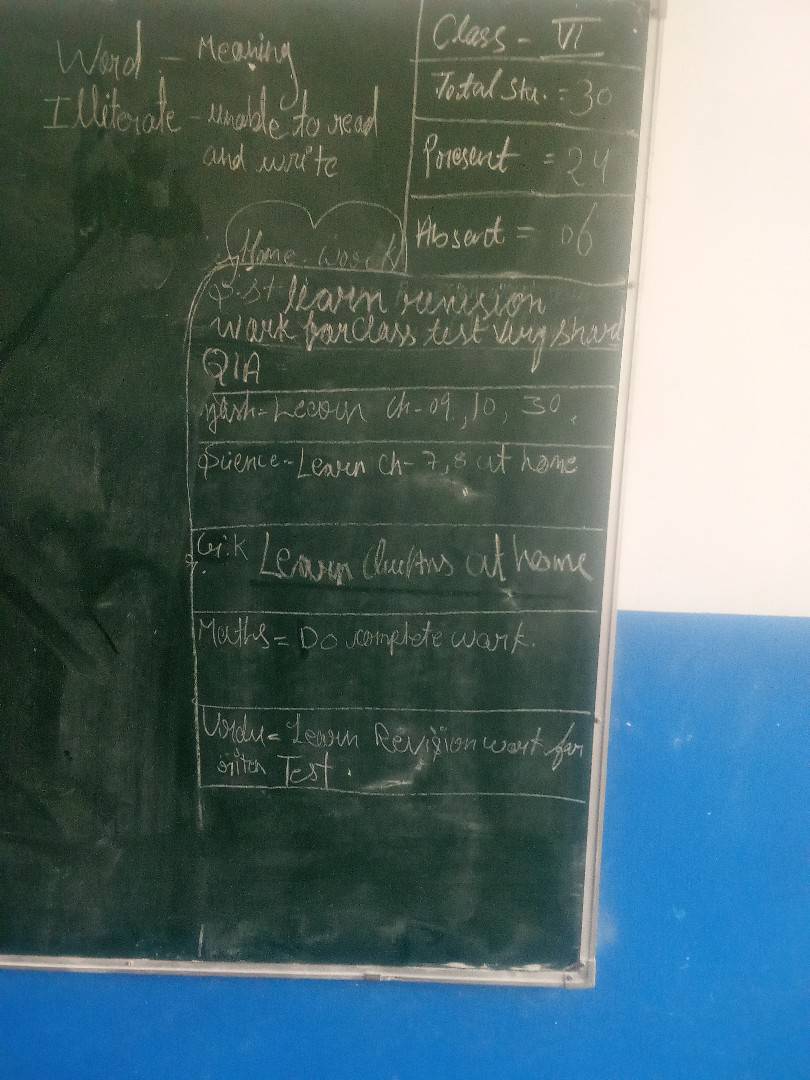 Word - Meaning
Illiterate - unable to read
and write
Class - VI
Total Stu. = 30
Present = 24
Absent = 06
Home Work
S.St learn revision
work for class test very short
Q/A
Learn ch - 09, 10, 30.
Science - Learn ch - 7, 8 at home
G.K Learn at home
Maths = Do complete work.
Urdu = Learn Revision work for
Test.